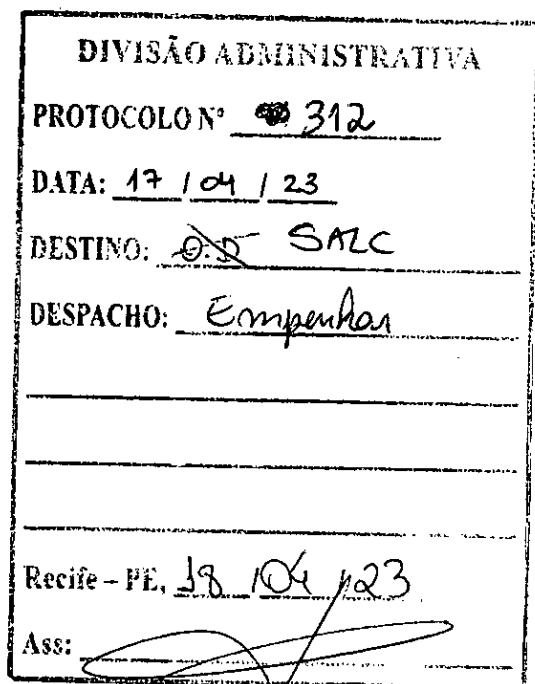 DIVISÃO ADMINISTRATIVA
PROTOCOLO Nº 312
DATA: 17 / 04 / 23
DESTINO: O.D SALC
DESPACHO: Empenhar
Recife – PE, 18 / 04 / 23
Ass: